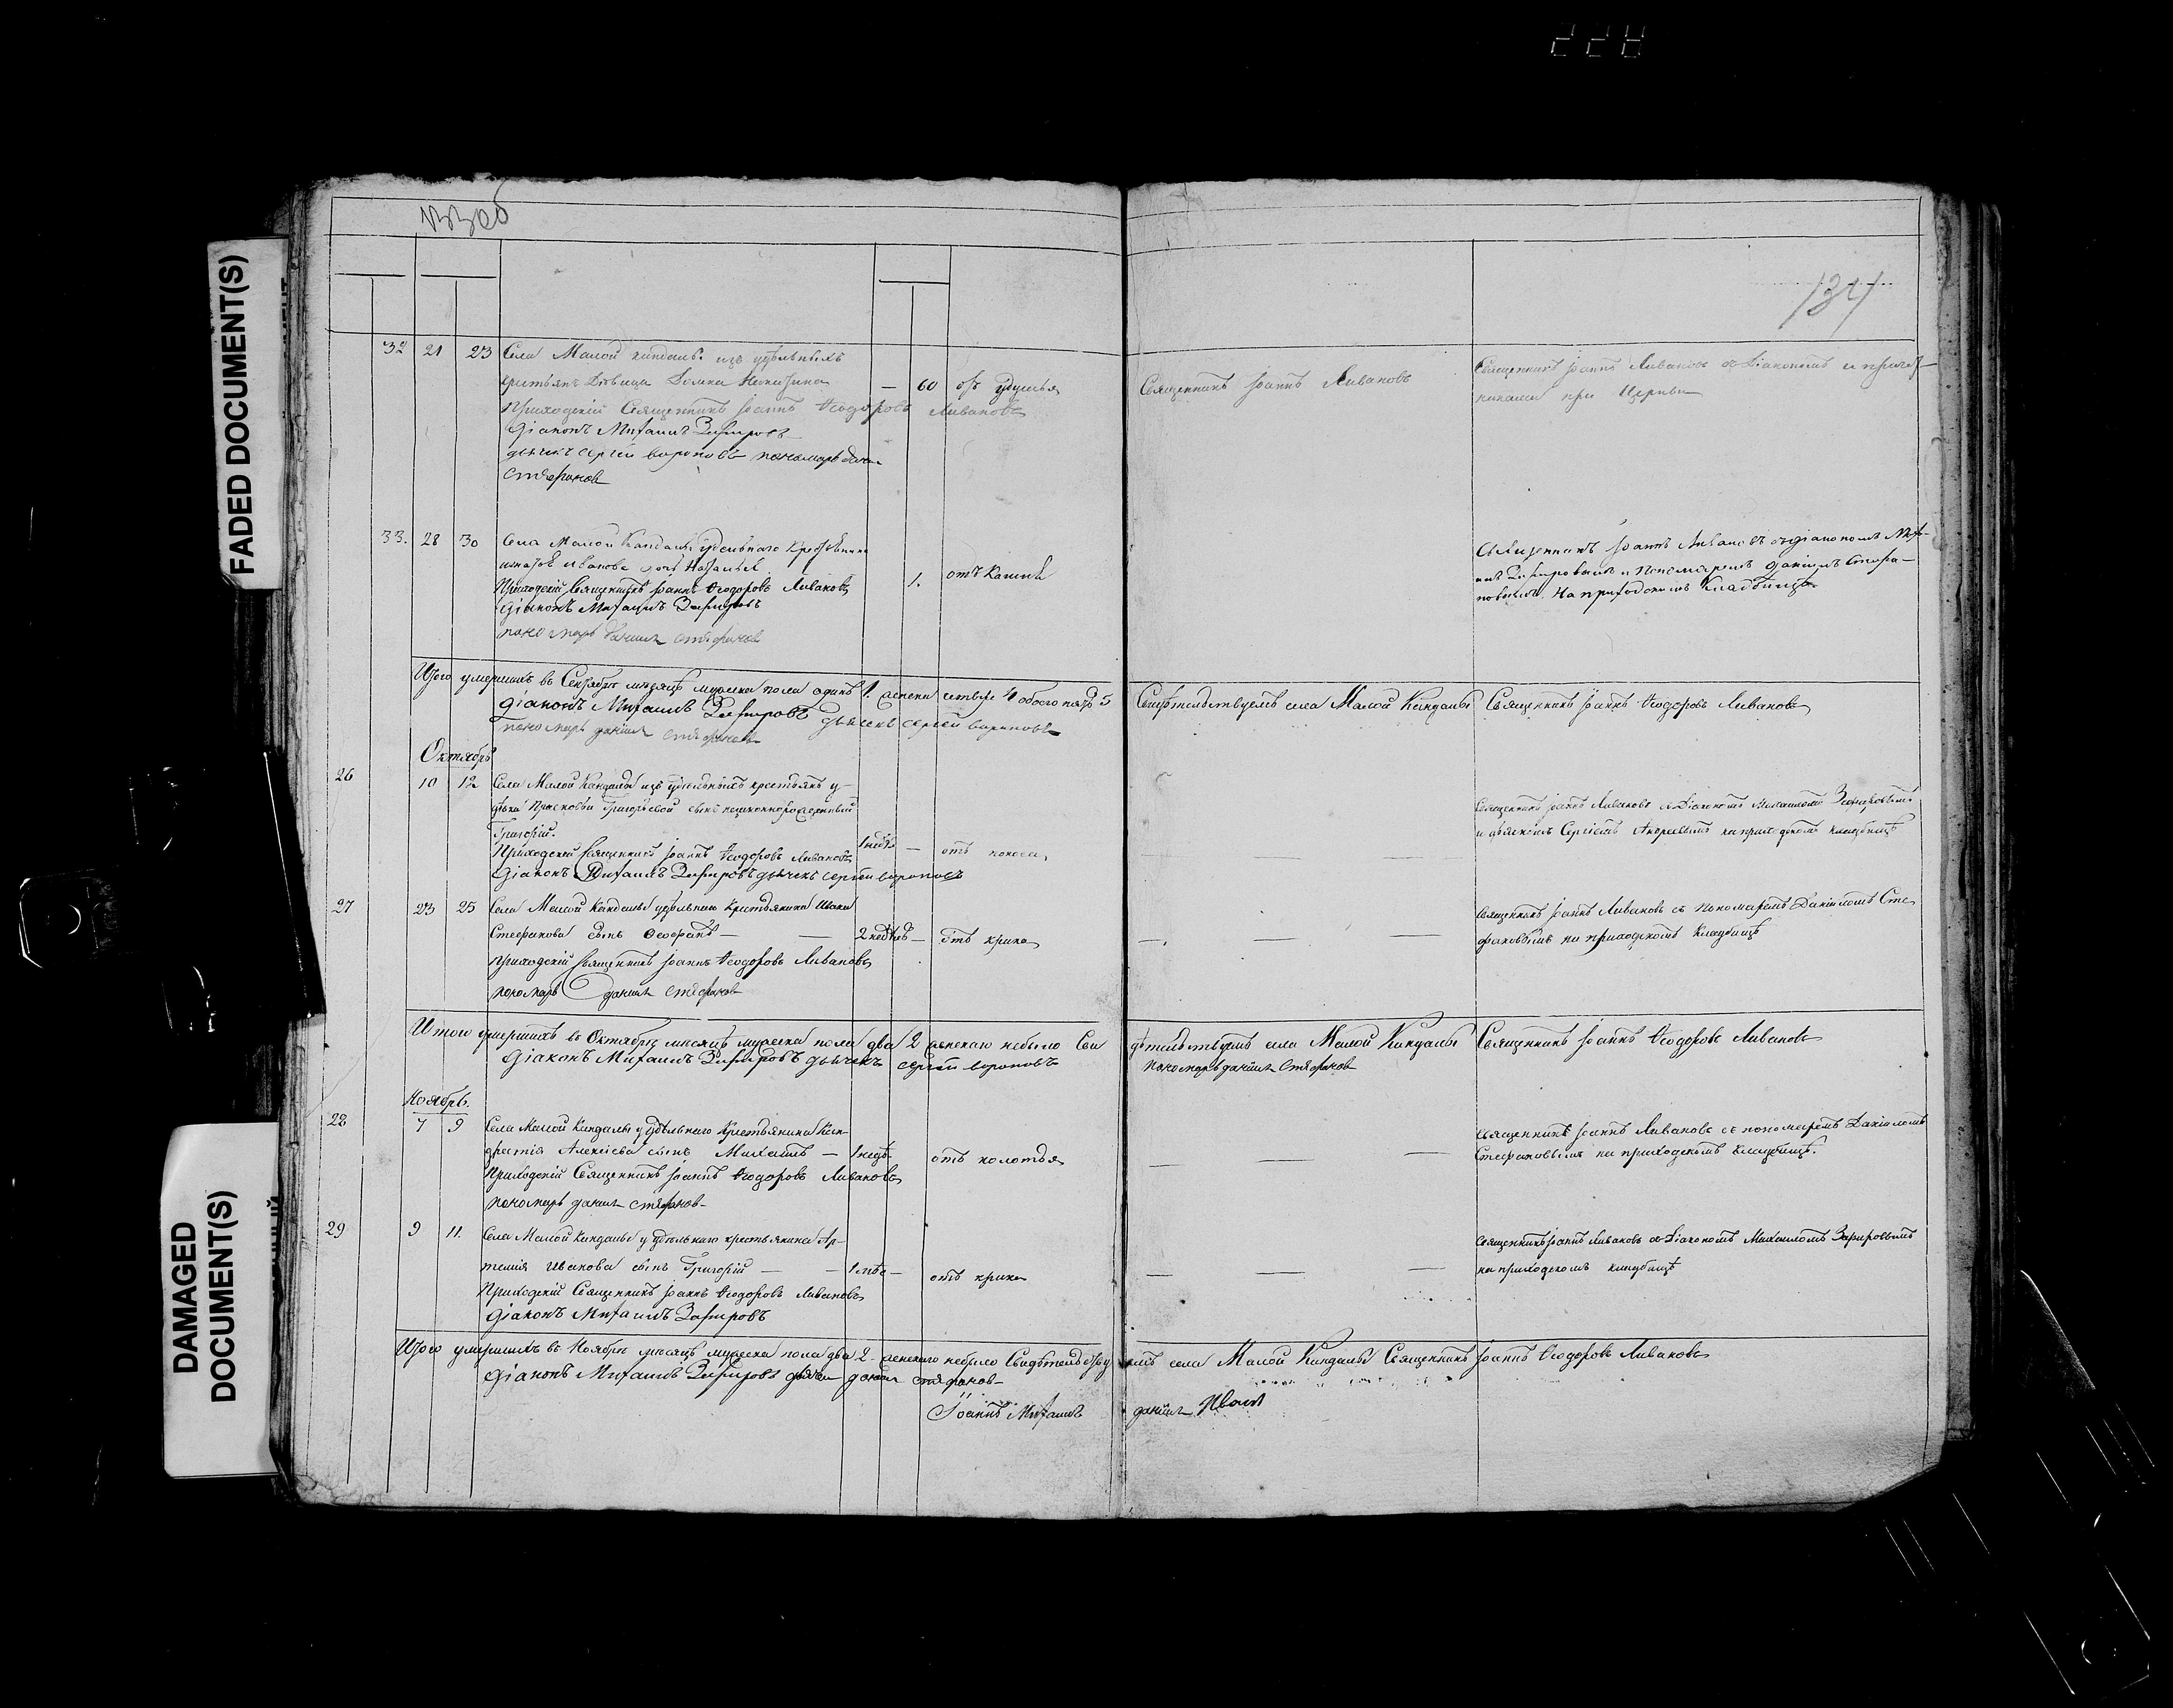 228
FADED DOCUMENT(S)
DAMAGED DOCUMENT(S)
133об
134
32 21 23 Села Малой Кандалы изъ удѣльныхъ
крестьянъ Дѣвица Домна Никитина — 60 отъ удушья
Священникъ Іоаннъ Ливановъ
Священникъ Іоаннъ Ливановъ съ Діакономъ и причет-
никами при Церкви
Приходскій Священникъ Іоаннъ Ѳеодоровъ Ливановъ
Діаконъ Михаилъ Зефировъ
дьячекъ Сергѣй Вороновъ пономарь
Стефановъ
33. 28 30 Села Малой Кандалы удѣльнаго Крестьянина
Иванова дочь Наталья 1. отъ Кашля
Приходскій Священникъ Іоаннъ Ѳеодоровъ Ливановъ
Діаконъ Михаилъ Зефировъ
пономарь Данилъ Стефановъ
Священникъ Іоаннъ Ливановъ съ діакономъ Миха-
иломъ Зефировымъ и Пономаремъ Даніиломъ Стефа-
новымъ на приходскомъ Кладбищѣ
Итого умершихъ въ Сентябрѣ мѣсяцѣ мужеска пола одинъ 1. женска четыре 4 обоего пола 5
Свидѣтельствуемъ села Малой Кандалы Священникъ Іоаннъ Ѳеодоровъ Ливановъ
Діаконъ Михаилъ Зефировъ дьячекъ Сергѣй Вороновъ
пономарь Данилъ Стефановъ
Октябрь
26 10 12 Села Малой Кандалы изъ удѣльныхъ крестьянъ у
Прасковьи Григорьевой сынъ незаконнорожденный
Григорій. 1 недѣ — отъ поноса
Приходской Священникъ Іоаннъ Ѳеодоровъ Ливановъ
Діаконъ Михаилъ Зефировъ дьячекъ Сергѣй Вороновъ
Священникъ Іоаннъ Ливановъ съ Діакономъ Михаиломъ Зефировымъ
и дьячкомъ Сергіемъ Андреевымъ на приходскомъ кладбищѣ
27 23 25 Села Малой Кандалы удѣльнаго Крестьянина Ивана
Стефанова сынъ Ѳеофанъ — 2 недѣль — отъ крика
Приходскій Священникъ Іоаннъ Ѳеодоровъ Ливановъ
пономарь Данилъ Стефановъ
Священникъ Іоаннъ Ливановъ съ Пономаремъ Даніиломъ Сте
фановымъ на приходскомъ Кладбищѣ
Итого умершихъ въ Октябрѣ мѣсяцѣ мужеска пола два 2 женскаго небыло Сви
дѣтельствуемъ села Малой Кандалы Священникъ Іоаннъ Ѳеодоровъ Ливановъ
Діаконъ Михаилъ Зефировъ дьячекъ Сергѣй Вороновъ
пономарь Данилъ Стефановъ
Ноябрь.
28 7 9 Села Малой Кандалы у удѣльнаго Крестьянина
Алексѣева сынъ Михаилъ — 1 недѣ отъ колотья
Приходскій Священникъ Іоаннъ Ѳеодоровъ Ливановъ
пономарь Данилъ Стефановъ
Священникъ Іоаннъ Ливановъ съ пономаремъ Даніиломъ
Стефановымъ на приходскомъ Кладбищѣ.
29 9 11. Села Малой Кандалы у удѣльнаго крестьянина Ар-
темія Иванова сынъ Григорій — 1 мѣс — отъ крика
Приходскій Священникъ Іоаннъ Ѳеодоровъ Ливановъ
Діаконъ Михаилъ Зефировъ
Священникъ Іоаннъ Ливановъ съ Діакономъ Михаиломъ Зефировымъ
на приходскомъ кладбищѣ
Итого умершихъ въ Ноябрѣ мѣсяцѣ мужеска пола два 2 женскаго небыло Свидѣтельству
емъ села Малой Кандалы Священникъ Іоаннъ Ѳеодоровъ Ливановъ
Діаконъ Михаилъ Зефировъ Данилъ Стефановъ
Іоаннъ Михаилъ Данилъ